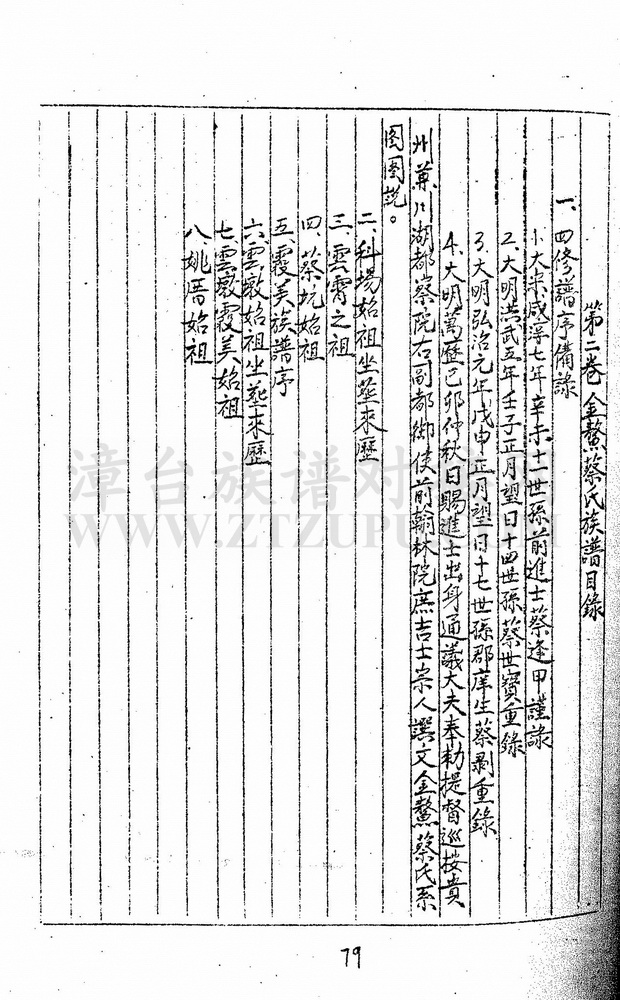 第二卷金鰲蔡氏族譜目錄
一、四修譜序備錄
1.大宋咸淳七年辛未十一世孫前進士蔡逢甲謹錄
2.大明洪武五年壬子正月望日十四世孫蔡世寶重錄
3.大明弘治元年戊申正月望日十七世孫郡庠生蔡剥重錄
4.大明萬歷己卯仲秋日賜進士出身通議大夫奉勅提督巡按貴
州兼川湖都察院右副都御使前翰林院庶吉士宗人譔文金鰲蔡氏系
图图說。
二、科場始祖坐塋來歷
三、雲霄之祖
四、蔡坑始祖
五、霞美族譜序
六、雲墩始祖坐塋來歷
七、雲墩霞美始祖
八、姚厝始祖
79
漳台族谱对接网
WWW.ZTZUPU.COM